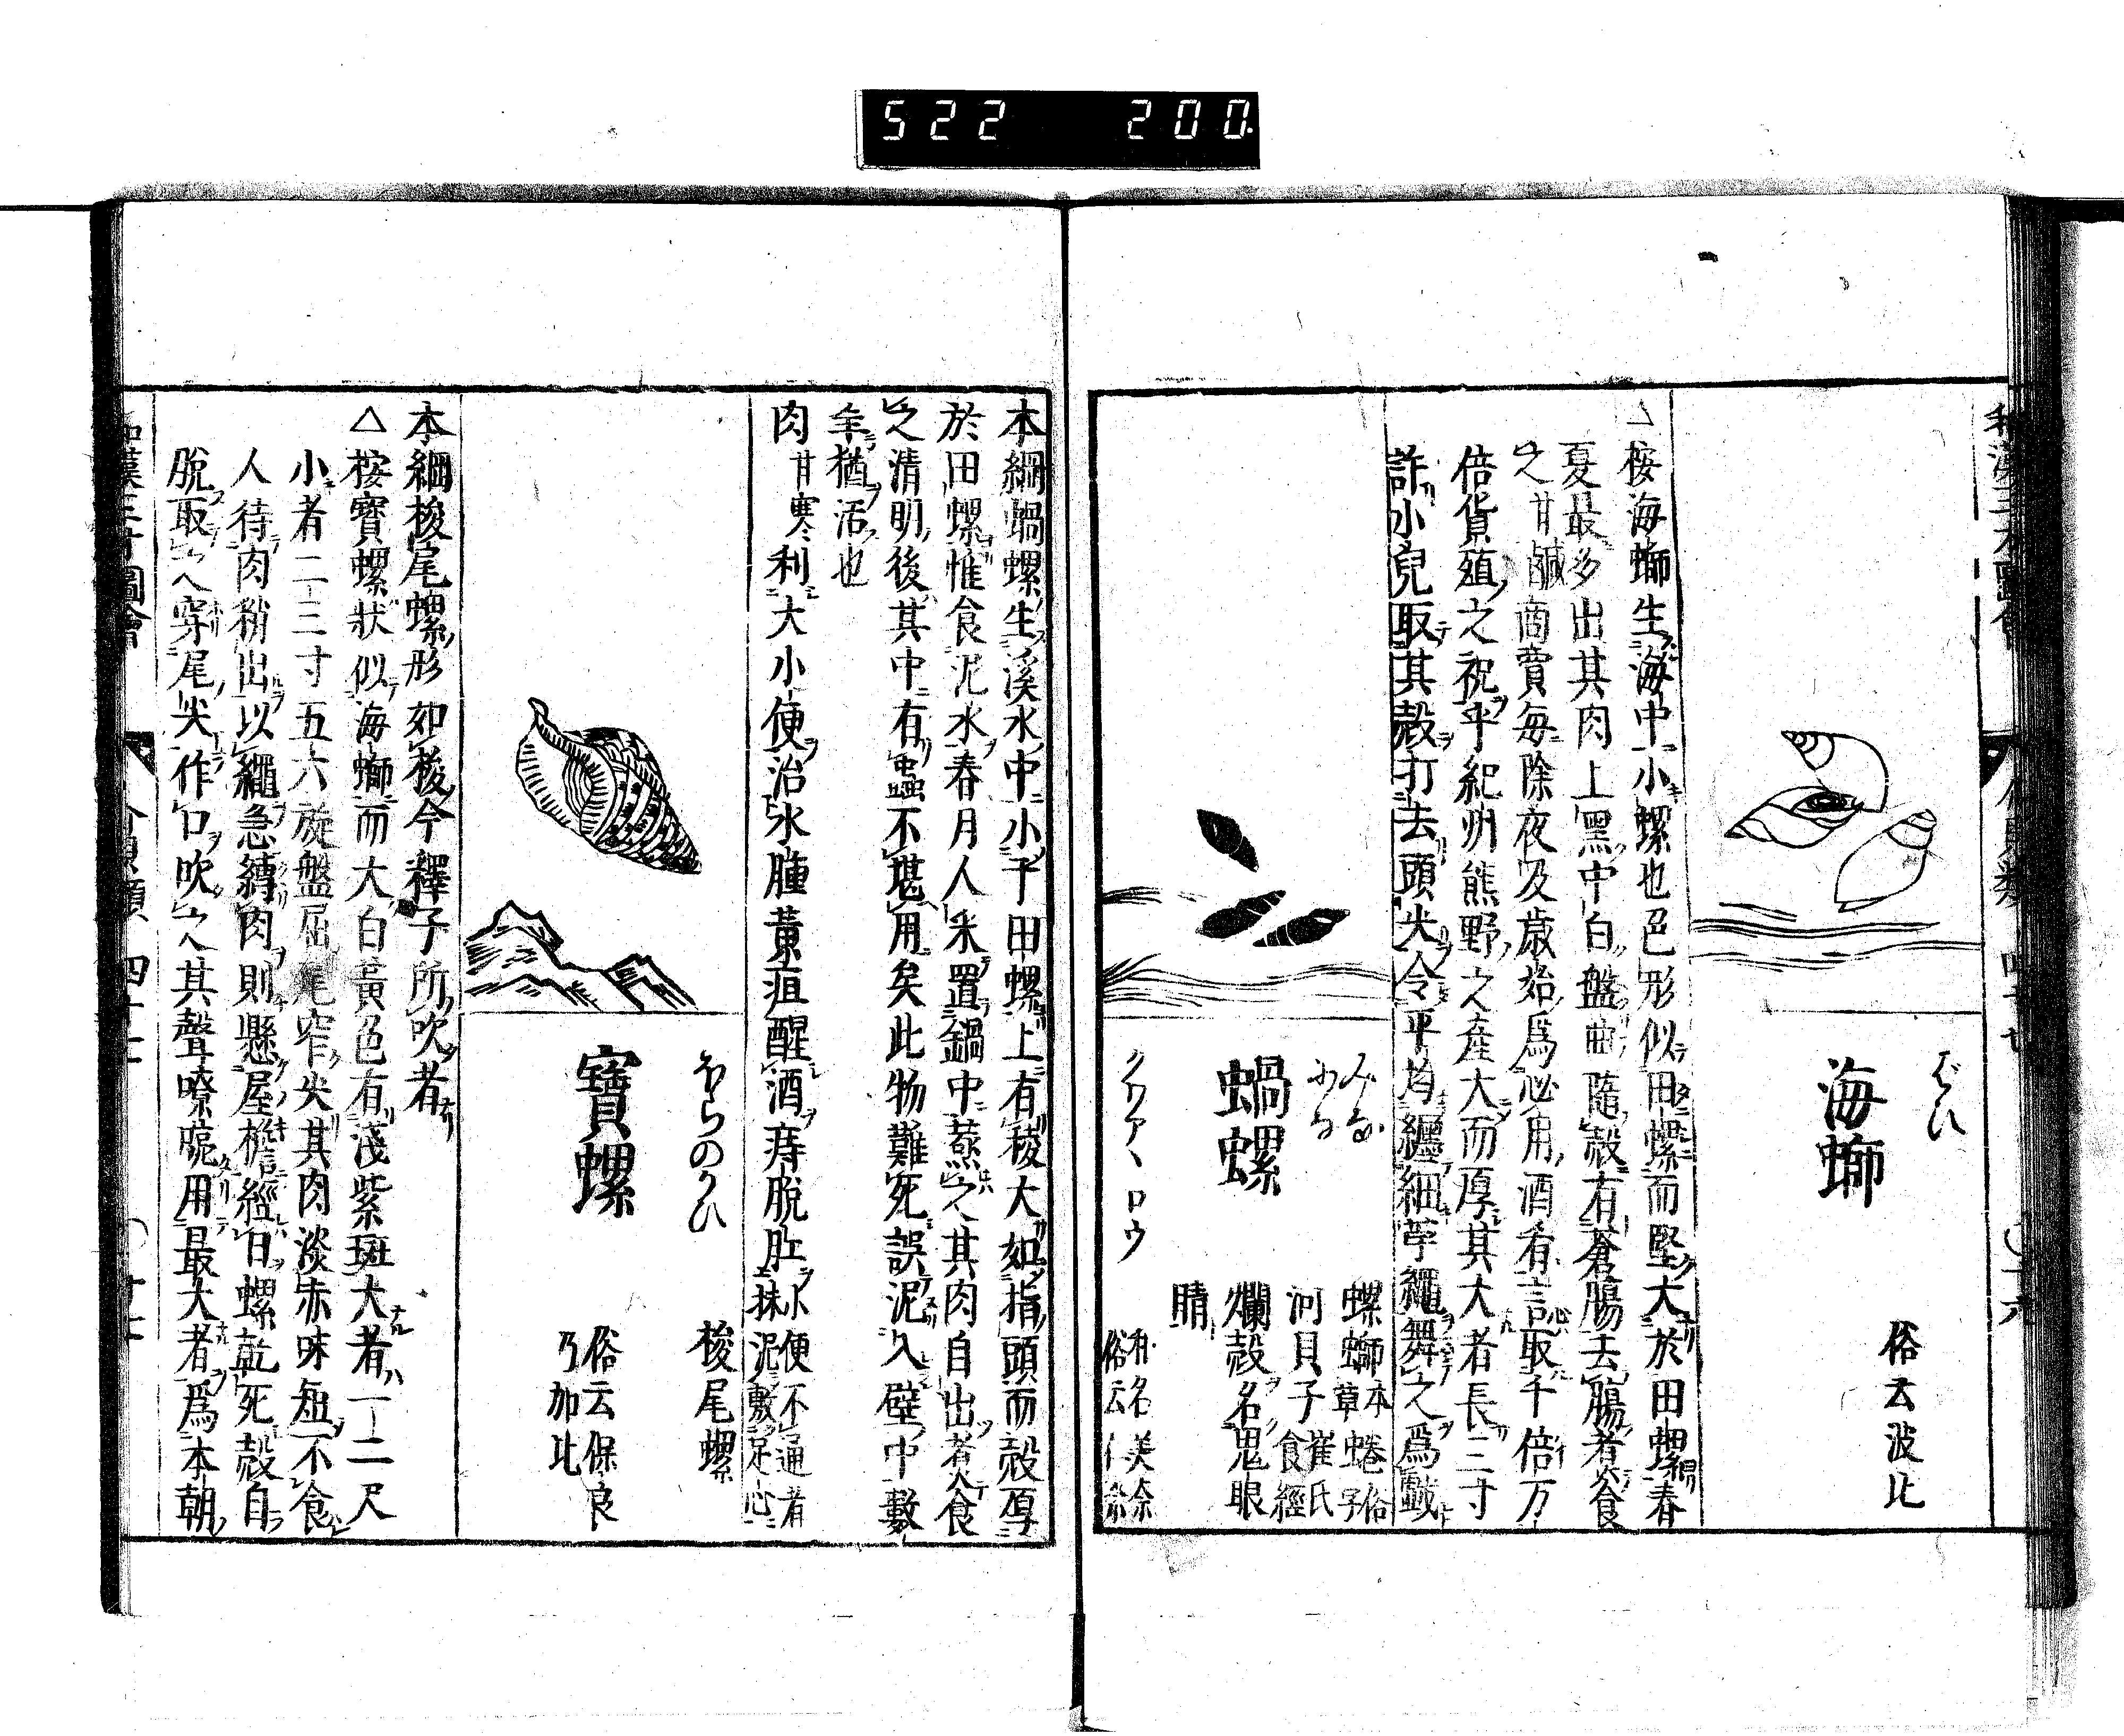 522 200.
ばひ
海螄
俗云波比
△桉海螄生海中小螺也色形似田螺而堅大於田螺春
夏最多出其肉上黑中白盤曲隨殼有蒼膓去膓者食
之甘鹹商賣每除夜及歲始爲必用酒肴言心取千倍万
倍貨殖之祝乎紀州熊野之產大而厚其大者長三寸
許小兒取其殼打去頭尖令平均纏細苧繩舞之爲戲
みな
にな
蝸螺
クワアヽロウ
螺螄本草 蜷俗字
河貝子崔氏食經
爛殼名鬼眼
睛
和名美奈
俗云
本綱蝸螺生溪水中小于田螺上有稜大如指頭而殼厚
於田螺惟食泥水春月人采置鍋中蒸之其肉自出者食
之清明後其中有蟲不堪用矣此物難死誤泥入壁中數
年猶活也
肉甘寒利大小便治水腫黃疸醒酒痔脫肛小便不通者抹泥敷足心
ほらのかひ
寶螺
梭尾螺
俗云保良
乃加比
本綱梭尾螺形如梭今釋子所吹者
△桉寶螺狀似海螄而大白黃色有淺紫斑大者一二尺
小者二三寸五六旋盤屈尾窄尖其肉淡赤味短不食
人待肉稍出以繩急縛肉則懸屋檐經日螺乾死殼自
脫取之穿尾尖作口吹之其聲嘹喨用最大者爲本朝